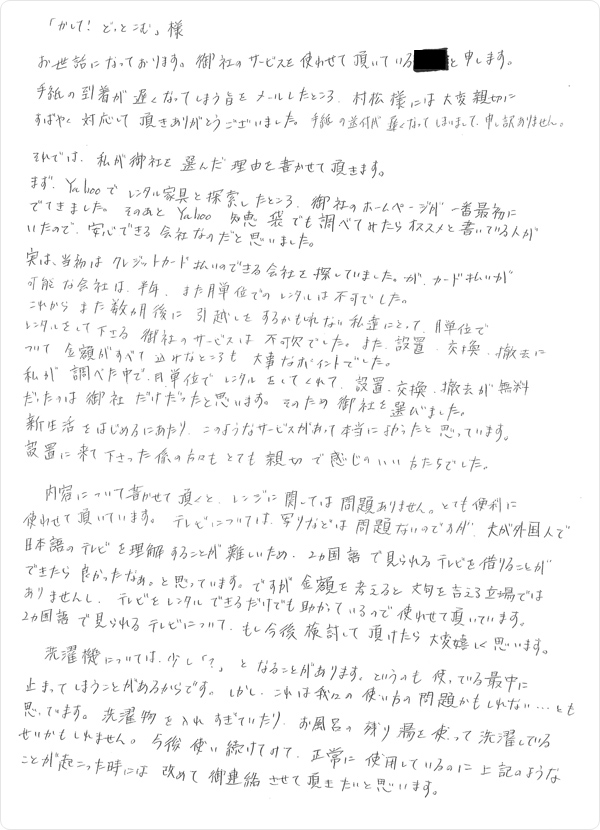 「かして！どっとこむ」様
お世話になっております。御社のサービスを使わせて頂いている と申します。
手紙の到着が遅くなってしまう旨をメールしたところ、村松様には大変親切に
すばやく対応して頂きありがとうございました。手紙の送付が遅くなってしまいまして、申し訳ありません。
それでは、私が御社を選んだ理由を書かせて頂きます。
まず、Yahooでレンタル家具と探索したところ、御社のホームページが一番最初に
でてきました。そのあとYahoo知恵袋でも調べてみたらオススメと書いてる人が
いたので、安心できる会社なのだと思いました。
実は、当初はクレジットカード払いのできる会社を探していました。が、カード払いが
可能な会社は、半年、また月単位でのレンタルは不可でした。
これからまた数ヵ月後に引越しをするかもしれない私達にとって、月単位で
レンタルをして下さる御社のサービスは不可欠でした。また、設置、交換、撤去に
ついて金額がすべて込みなところも大事なポイントでした。
私が調べた中で、月単位でレンタルをしてくれて、設置・交換・撤去が無料
だったのは御社だけだったと思います。そのため御社を選びました。
新生活をはじめるにあたり、このようなサービスがあって本当によかったと思っています。
設置に来て下さった係の方々もとても親切で感じのいい方たちでした。
内容について書かせて頂くと、レンジに関しては問題ありません。とても便利に
使わせて頂いています。テレビについては、写りなどは問題ないのですが、夫が外国人で
日本語のテレビを理解することが難しいため、2ヵ国語で見られるテレビを借りることが
できたら良かったなぁ。と思っています。ですが金額を考えると文句を言える立場では
ありませんし、テレビをレンタルできるだけでも助かっているので使わせて頂いています。
2ヵ国語で見られるテレビについて、もし今後検討して頂けたら大変嬉しく思います。
洗濯機については、少し「？」となることがあります。というのも使っている最中に
止まってしまうことがあるからです。しかし、これは我々の使い方の問題かもしれない…とも
思っています。洗濯物を入れすぎていたり、お風呂の残り湯を使って洗濯している
せいかもしれません。今後使い続けてみて、正常に使用しているのに上記のような
ことが起こった時には改めて御連絡させて頂きたいと思います。